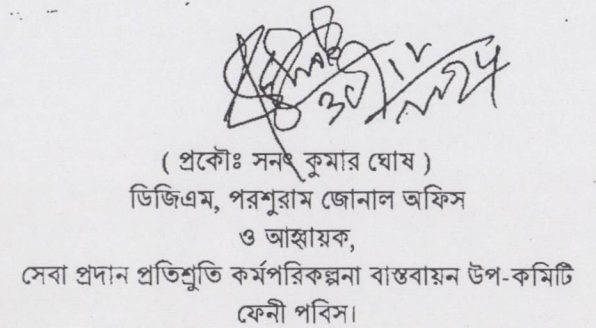 ( প্রকৌঃ সনৎ কুমার ঘোষ )
ডিজিএম, পরশুরাম জোনাল অফিস
ও আহ্বায়ক,
সেবা প্রদান প্রতিশ্রুতি কর্মপরিকল্পনা বাস্তবায়ন উপ-কমিটি
ফেনী পবিস।